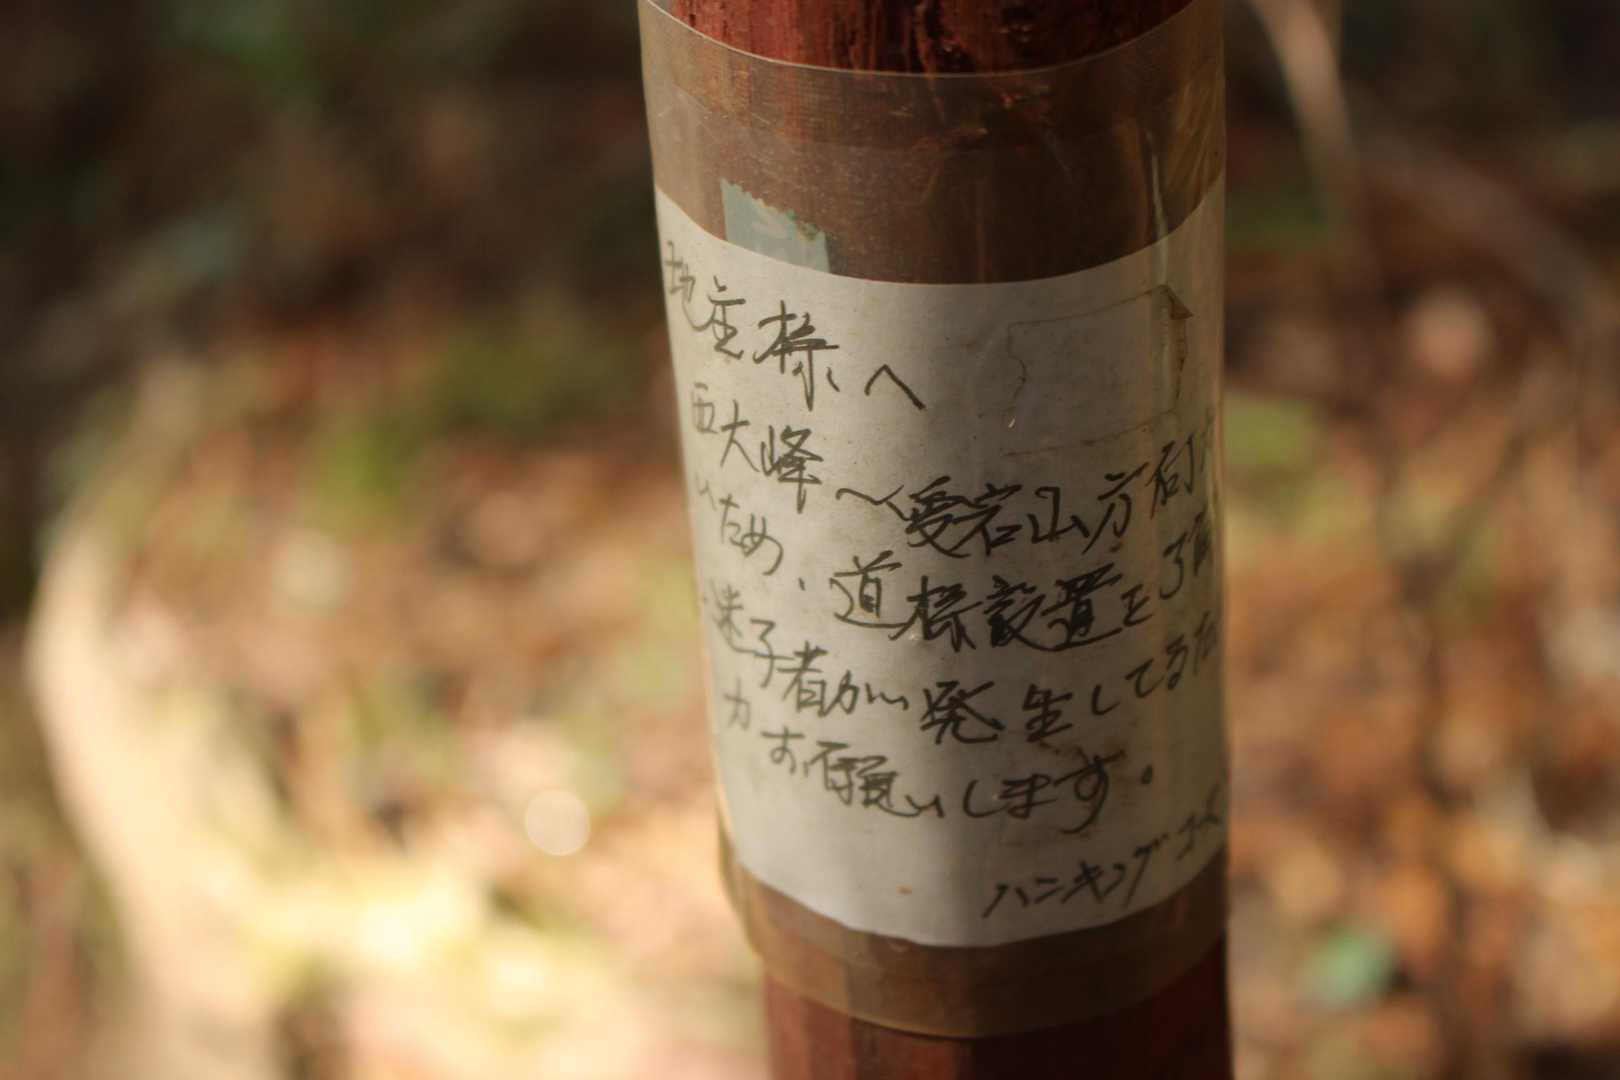 地主様へ
西大峰〜愛宕山方向
いため、道標設置を了
迷子者が発生してるた
力お願いします。
ハンキングコース